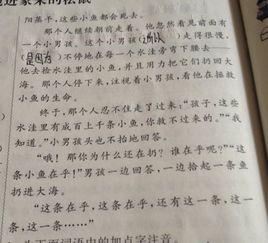 阳蒸干，这些小鱼都会死去。
那个人继续朝前走着。他忽然看见前面有
一个小男孩，这个小男孩（ ）走得很慢，
（是因为）不停地在每一个水洼旁弯下腰去——
他去捡水洼里的小鱼，并且用力把它们扔回大
海。那个人停下来，注视着小男孩，看他在拯救
小鱼的生命。
终于，那个人忍不住走了过来：“孩子，这些
水洼里有成百上千条小鱼，你救不过来的。”“我
知道。”小男孩头也不抬地回答。
“哦！那你为什么还在扔？谁在乎呢？”“这
条小鱼在乎！”男孩一边回答，一边拾起一条鱼
扔进大海。
“这条在乎，这条在乎，还有这一条，这一
条，这一条……”